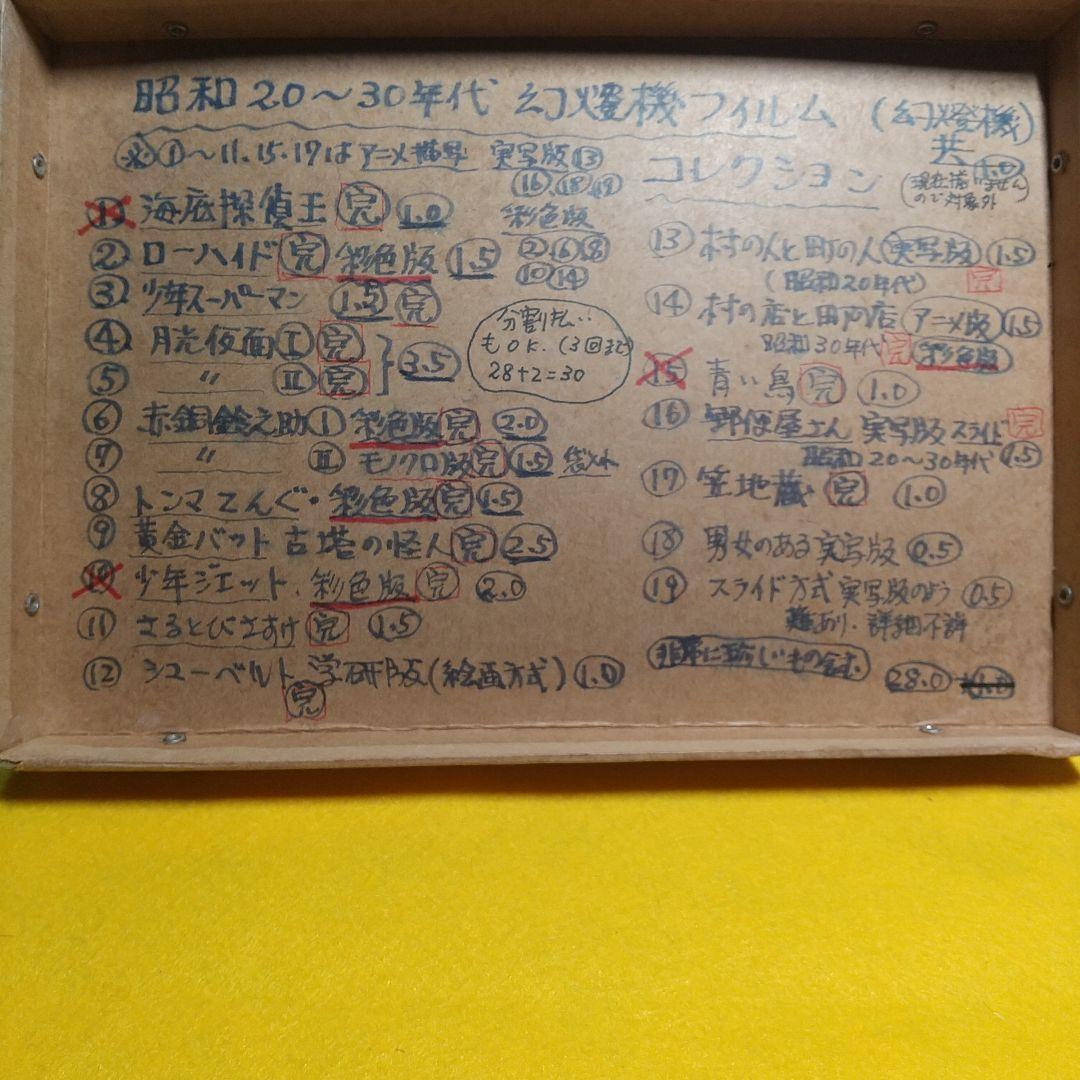 昭和20〜30年代 幻燈機フィルム (幻燈機)共 1.0
コレクション
(現在落 いません
ので対象外
※ ①〜11.15.17は アニメ 実写版 ⑬
⑯ ⑱ ⑲
彩色版
② ⑥ ⑧
⑩ ⑭
① 海底探偵王 完 1.0
② ローハイド 完 彩色版 1.5
③ 少年スーパーマン 1.5 完
④ 月光仮面 Ⅰ 完
⑤ 〃 Ⅱ 完 3.5
分割払い
もOK.(3回まで)
28+2=30
⑥ 赤銅鈴之助 Ⅰ 彩色版 完 2.0
⑦ 〃 Ⅱ モノクロ版 完 1.5 袋入れ
⑧ トンマてんぐ・彩色版 完 1.5
⑨ 黄金バット 古塔の怪人 完 2.5
⑩ 少年ジェット. 彩色版 完 2.0
⑪ さるとびさすけ 完 1.5
⑫ シューベルト 学研版(絵画方式) 1.0
完
⑬ 村の人と町の人 実写版 1.5
(昭和20年代) 完
⑭ 村の店と町の店 アニメ版 1.5
昭和30年代 完 彩色版
⑮ 青い鳥 完 1.0
⑯ 郵便屋さん 実写版 スライド 完
昭和20〜30年代 1.5
⑰ 笠地蔵 完 1.0
⑱ 男女のある実写版 0.5
⑲ スライド方式 実写版のよう 0.5
難あり. 詳細不詳
非常に珍しいもの含む.
28.0